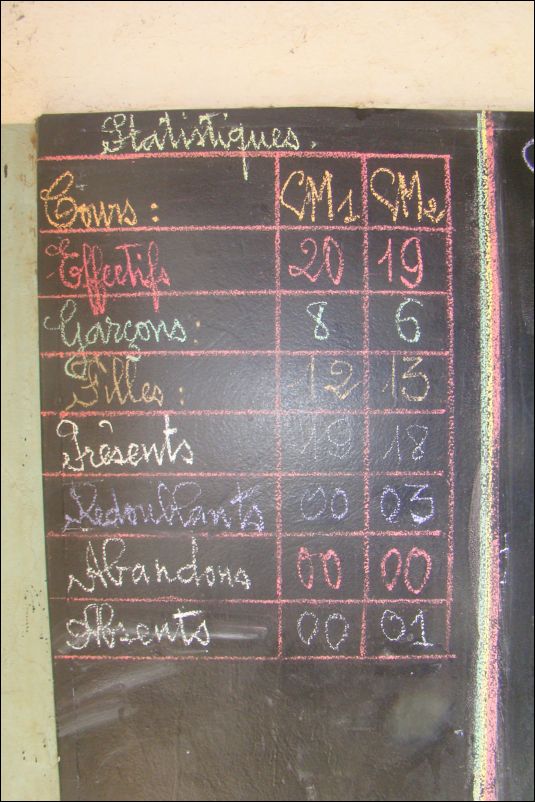 Statistiques.
Cours : CM1 CM2
Effectifs 20 19
Garçons : 8 6
Filles : 12 13
Présents 19 18
Redoublants 00 03
Abandons 00 00
Absents 00 01